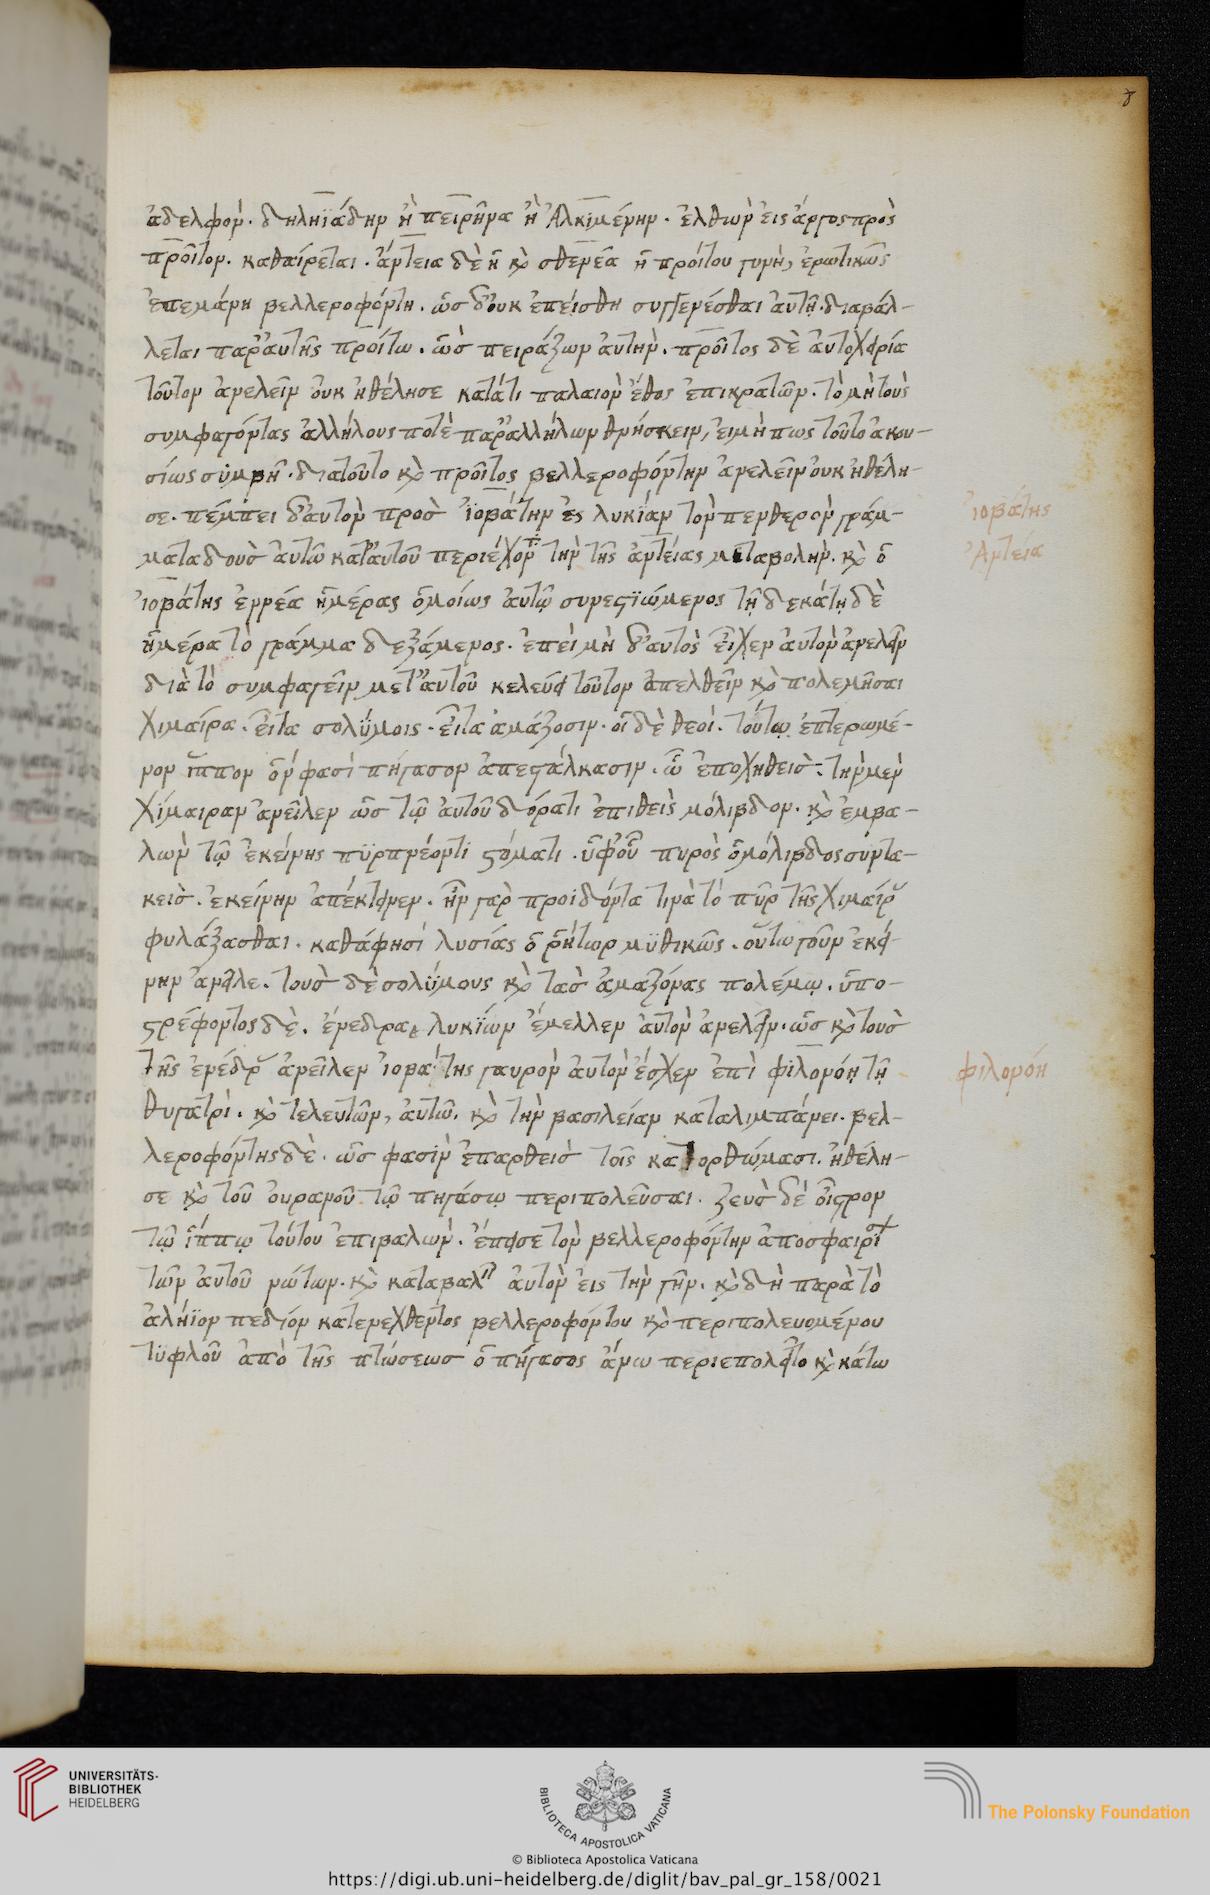 8
ἀδελφὸν. δηληϊάδην ἢ πειρῆνα ἢ Ἀλκιμένην. ἐλθὼν εἰς ἄργος πρὸς
προῖτον. καθαίρεται. ἄντεια δὲ ἢ κ̀ σθενέα ἡ προίτου γυνὴ, ἐρωτικῶς
ἐπεμάνη βελλεροφόντη. ὡς δ' οὐκ ἐπείσθη συγγενέσθαι αὐτῇ. διαβάλ-
λεται παρ' αὐτῆς προίτω. ὡς πειράζων αὐτὴν. προῖτος δὲ αὐτοχειρία
τοῦτον ἀνελεῖν οὐκ ἠθέλησε κατά τι παλαιὸν ἔθος ἐπικρατῶν. τὸ μὴ τοὺς
συμφαγόντας ἀλλήλους ποτὲ παρ' ἀλλήλων θνήσκειν, εἰ μή πως τοῦτο ἀκου-
σίως συμβῆ. διατοῦτο κ̀ προῖτος βελλεροφόντην ἀνελεῖν οὐκ ἠθέλη-
σε. πέμπει δ' αὐτὸν πρὸς ἰοβάτην ἐς λυκίαν τὸν πενθερὸν γράμ-
ματα δοὺς αὐτῶ κατ' αὐτοῦ περιέχοντα τὴν τῆς ἀντείας μεταβολὴν. κ̀ ὁ
ἰοβάτης ἐννέα ἡμέρας ὁμοίως αὐτῷ συνεστιώμενος τῇ δεκάτῃ δὲ
ἡμέρα τὸ γράμμα δεξάμενος. ἐπεὶ μὴ δ' αὐτὸς εἶχεν αὐτὸν ἀνελεῖν
διὰ τὸ συμφαγεῖν μετ' αὐτοῦ κελεύει τοῦτον ἀπελθεῖν κ̀ πολεμῆσαι
χιμαίρα. εἶτα σολύμοις. εἶτα ἀμάζοσιν. οἱ δὲ θεοὶ. τούτῳ ἐπτερωμέ-
νον ἵππον ὃν φασὶ πήγασον ἀπεστάλκασιν. ὧ ἐποχηθεὶς. τὴν μὲν
χίμαιραν ἀνεῖλεν ὡς τῷ αὐτοῦ δόρατι ἐπιθεὶς μόλιβδον. κ̀ ἐμβα-
λὼν τῷ ἐκείνης πῦρ πνέοντι στόματι. ὑφ' οὗ πυρὸς ὁ μόλιβδος συντα-
κεὶς. ἐκείνην ἀπέκτεινεν. ἦν γὰρ προϊδόντα τινὰ τὸ πῦρ τῆς χιμαίρας
φυλάξασθαι. καθά φησὶ λυσίας ὁ ῥήτωρ μυθικῶς. οὕτω γοῦν ἐκεί-
νην ἀνεῖλε. τοὺς δὲ σολύμους κ̀ τὰς ἀμαζόνας πολέμῳ. ὑπο-
στρέφοντος δὲ. ἐνέδρα λυκίων ἔμελλεν αὐτὸν ἀνελεῖν. ὡς κ̀ τοὺς
τῆς ἐνέδρας ἀνεῖλεν ἰοβάτης γαυρὸν αὐτὸν ἔσχεν ἐπὶ φιλονόῃ τῇ
θυγατρὶ. κ̀ τελευτῶν, αὐτῶ. κ̀ τὴν βασιλείαν καταλιμπάνει. βελ-
λεροφόντης δὲ. ὥς φασὶν ἐπαρθεὶς τοῖς κατορθώμασι. ἠθέλη-
σε κ̀ τοῦ οὐρανοῦ τῷ πηγάσῳ περιπολεῦσαι. ζεὺς δὲ οἶστρον
τῷ ἵππῳ τούτου ἐπιβαλὼν. ἔπεισε τὸν βελλεροφόντην ἀποσφαιρίσαι
τῶν αὐτοῦ νώτων. κ̀ καταβαλεῖν αὐτὸν εἰς τὴν γῆν. κ̀ δὴ παρὰ τὸ
ἀλήϊον πεδίον κατενεχθέντος βελλεροφόντου κ̀ περιπολευομένου
τυφλοῦ ἀπὸ τῆς πτώσεως ὁ πήγασος ἄνω περιεπολεῖτο κ̀ κάτω
ἰοβάτης
Ἀντεία
φιλονόη
UNIVERSITÄTS-
BIBLIOTHEK
HEIDELBERG
BIBLIOTECA APOSTOLICA VATICANA
© Biblioteca Apostolica Vaticana
The Polonsky Foundation
https://digi.ub.uni-heidelberg.de/diglit/bav_pal_gr_158/0021